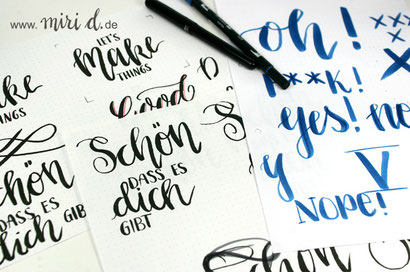 www.miri d.de
LET'S
Make
THINGS
Good
Schön
DASS ES
dich
GIBT
Make
THINGS
Schön
DASS ES
dich GIBT
oh!
f**k!
yes! no
y V
NOPE!